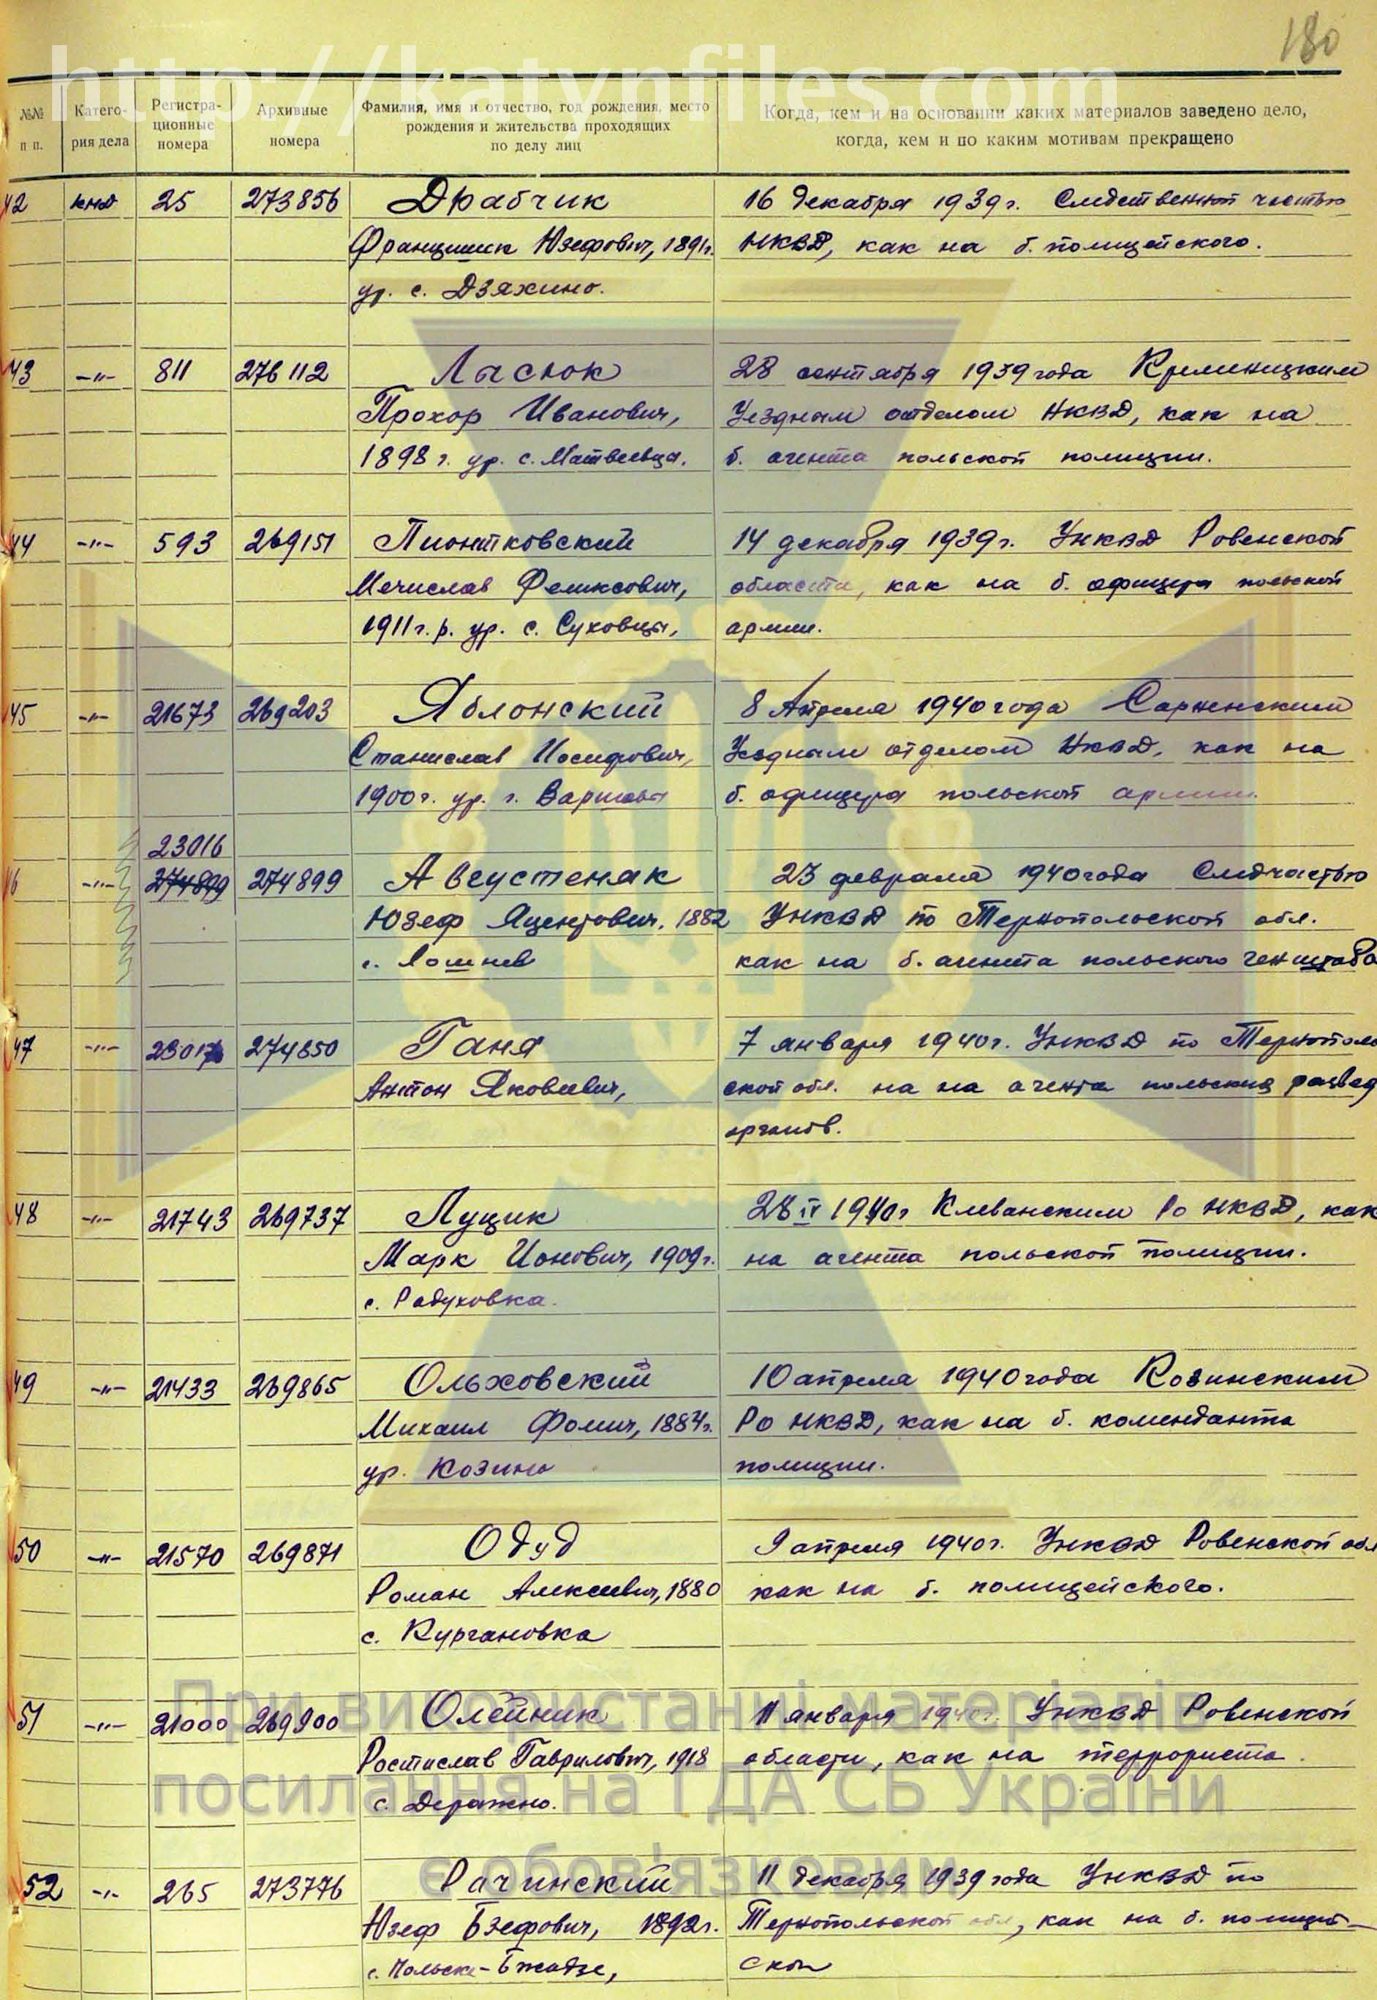 180
http://katynfiles.com
№№ п п.
Катего- рия дела
Регистра- ционные номера
Архивные номера
Фамилия, имя и отчество, год рождения, место рождения и жительства проходящих по делу лиц
Когда, кем и на основании каких материалов заведено дело, когда, кем и по каким мотивам прекращено
42 кнд 25 273856 Драбчик 16 декабря 1939г. Следственной частью
Францишик Юзефович, 1891г. НКВД, как на б. полицейского.
ур. с. Дзяхино.
43 -"- 811 276112 Лысюк 28 сентября 1939 года Кременицким
Прохор Иванович, Уездным отделом НКВД, как на
1898 г. ур. с. Матвеевца, б. агента польской полиции.
44 -"- 593 269151 Пионтковский 14 декабря 1939г. УНКВД Ровенской
Мечислав Феликсович, области, как на б. офицера польской
1911г.р. ур. с. Суховцы, армии.
45 -"- 21673 269203 Яблонский 8 Апреля 1940 года Сарненским
Станислав Иосифович, Уездным отделом НКВД, как на
1900г. ур. г. Варшава б. офицера польской армии.
23016
46 -"- 274899 274899 Августеняк 23 февраля 1940 года Следчастью
Юзеф Яцентович. 1882 УНКВД по Тернопольской обл.
с. Лошнев как на б. агента польского генштаба
47 -"- 23017 274850 Ганя 7 января 1940г. УНКВД по Тернополь
Антон Яковлевич, ской обл. на на агента польских развед
органов.
48 -"- 21743 269737 Луцик 28 IV 1940г Клеванским Ро НКВД, как
Марк Ионович, 1909г. на агента польской полиции.
с. Радуховка.
49 -"- 21433 269865 Ольховский 10 апреля 1940 года Козинским
Михаил Фомич, 1884г. Ро НКВД, как на б. коменданта
ур. Козино полиции.
50 -"- 21570 269871 Одуд 9 апреля 1940г. УНКВД Ровенской обл
Роман Алексеевич, 1880 как на б. полицейского.
с. Кургановка
51 -"- 21000 269900 Олейник 11 января 1940г. УНКВД Ровенской
Ростислав Гаврилович, 1918 области, как на террориста.
с. Деражно.
52 -"- 265 273776 Рачинский 11 декабря 1939 года УНКВД по
Юзеф Бзефович, 1892г. Тернопольской обл, как на б. полицей-
с. Польске-Бжадзе, ской
При використанні матеріалів
посилання на ГДА СБ України
є обов'язковим